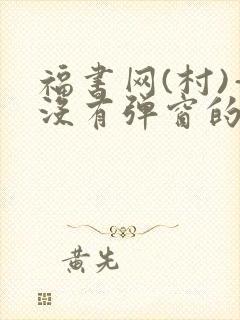 福书网(村)-
没有弹窗的
黄先